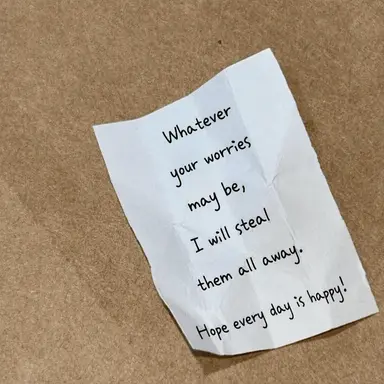 Whatever
your worries
may be,
I will steal
them all away.
Hope every day is happy!